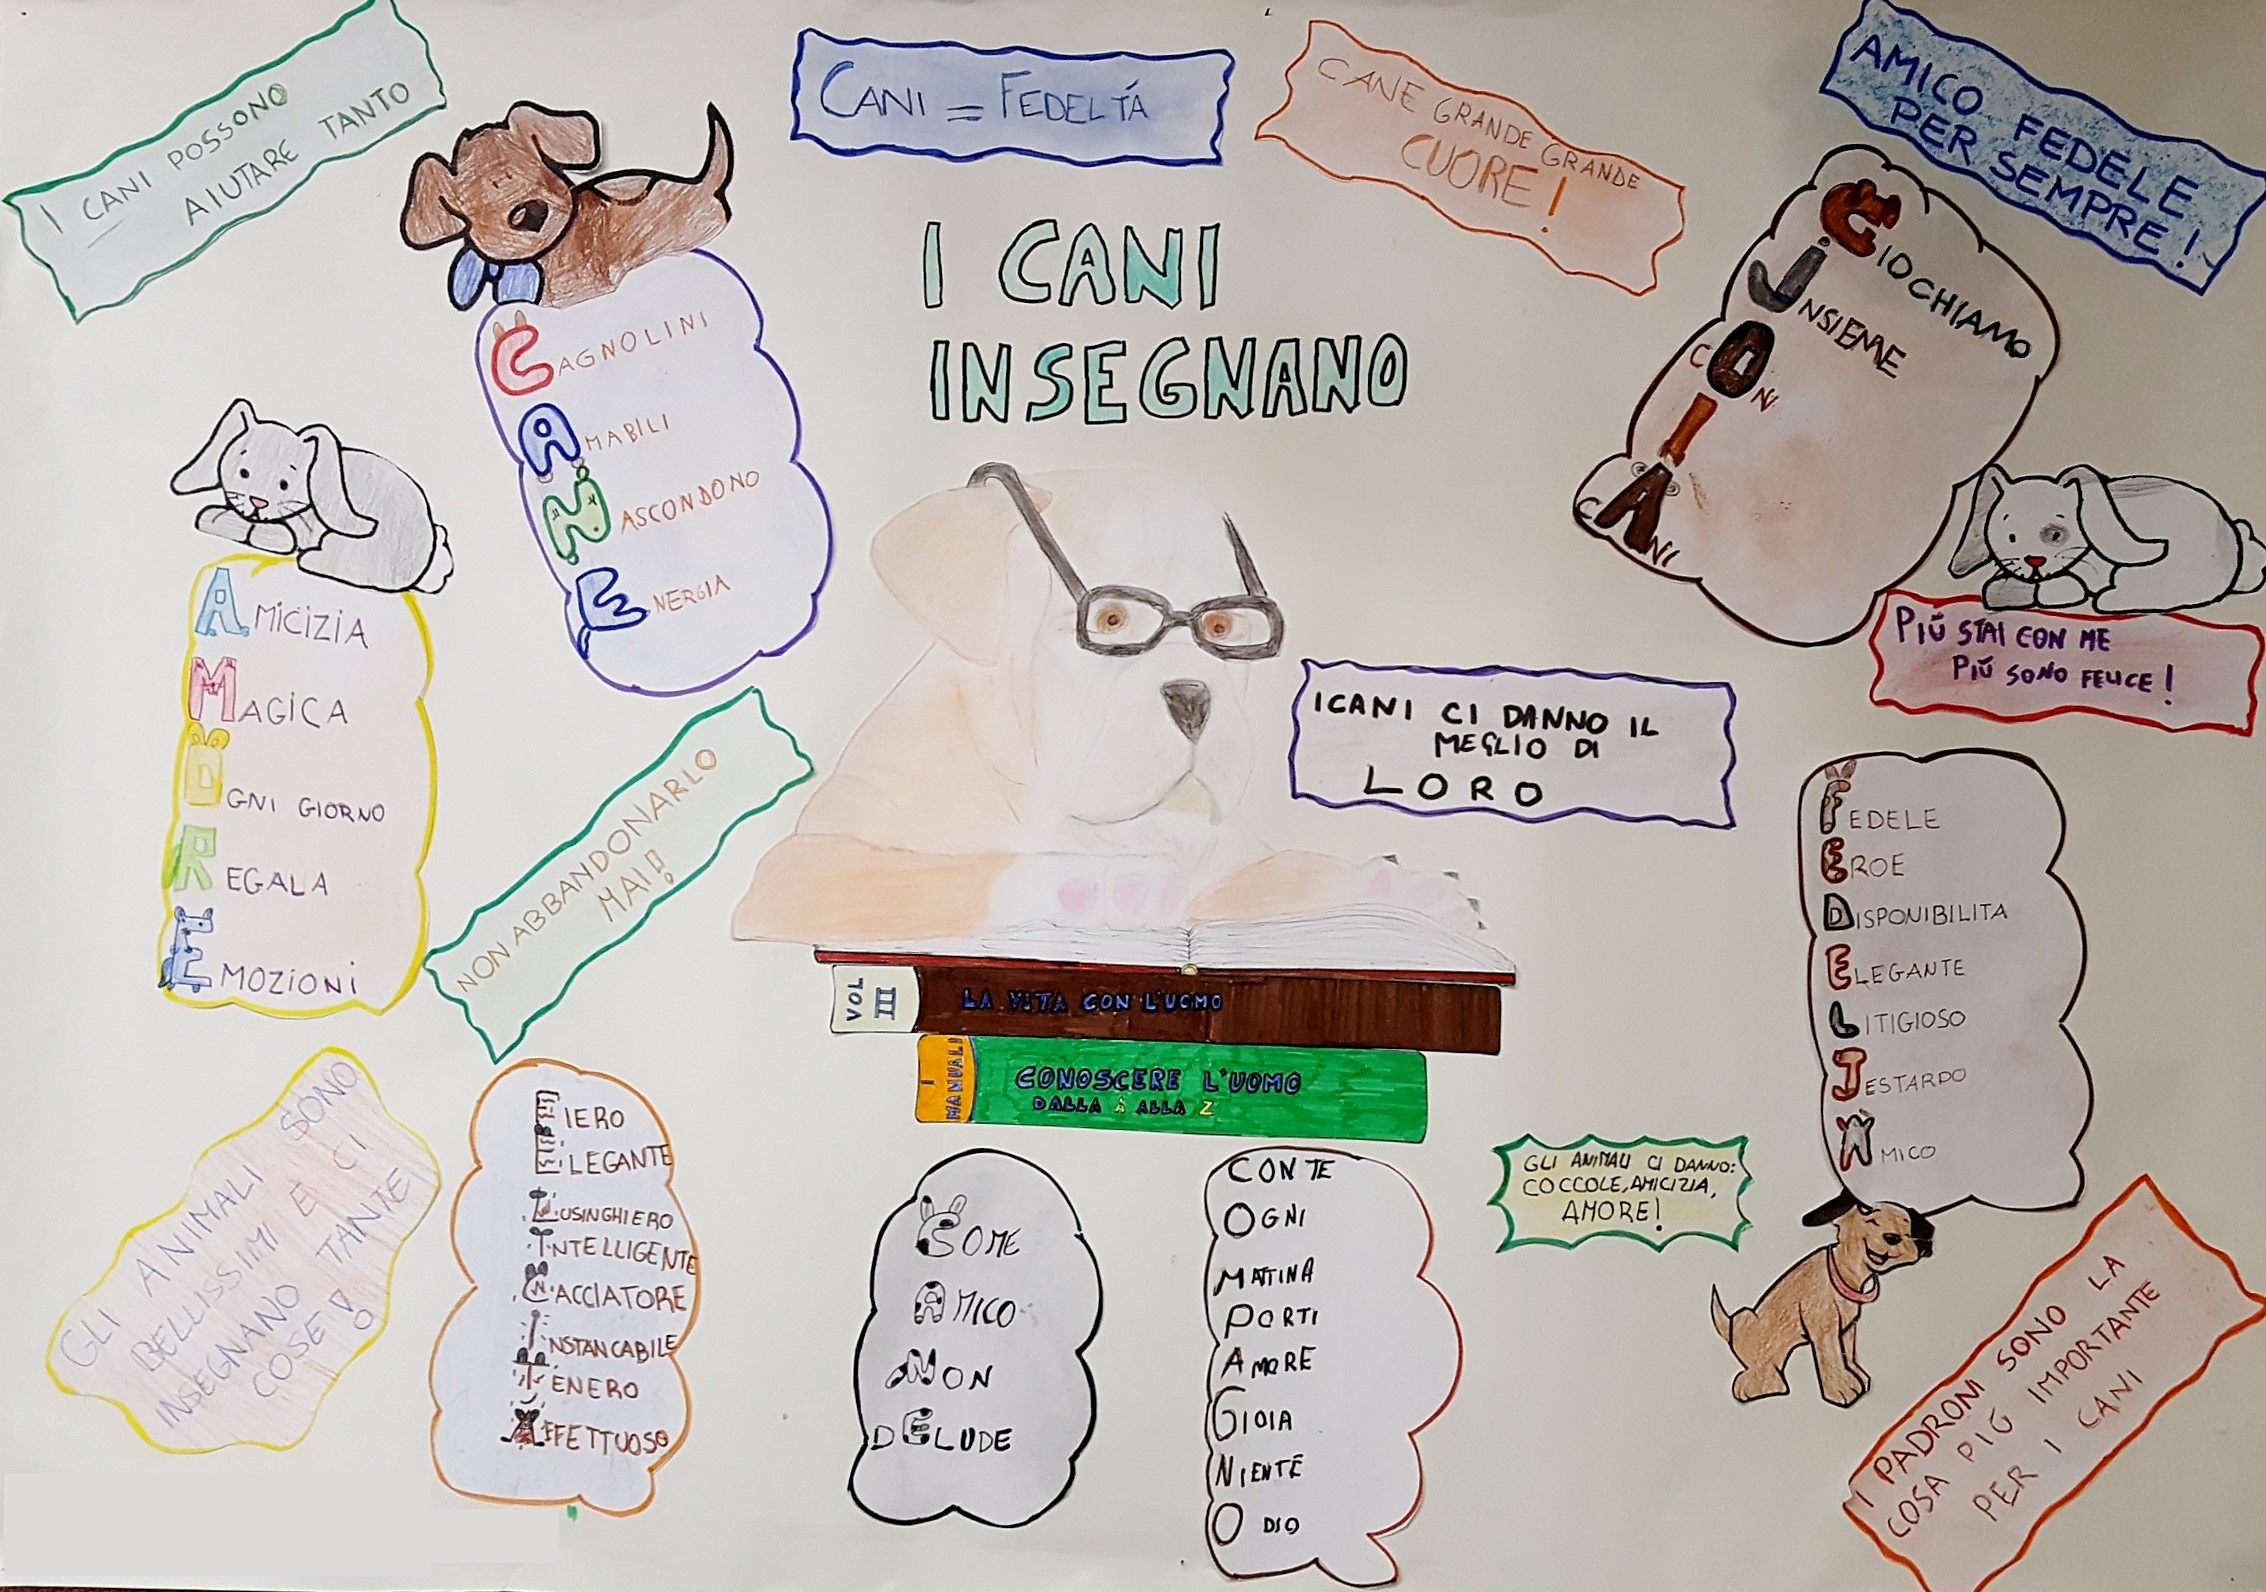 I CANI POSSONO
AIUTARE TANTO
CANI = FEDELTÁ
CANE GRANDE GRANDE
CUORE!
AMICO FEDELE
PER SEMPRE!
I CANI
INSEGNANO
CAGNOLINI
AMABILI
NASCONDONO
ENERGIA
GIOCHIAMO
INSIEME
CON
I
CANI
AMICIZIA
MAGICA
OGNI GIORNO
REGALA
EMOZIONI
NON ABBANDONARLO
MAI!
I CANI CI DANNO IL
MEGLIO DI
LORO
PIÚ STAI CON ME
PIÚ SONO FELICE!
FEDELE
EROE
DISPONIBILITA
ELEGANTE
LITIGIOSO
JESTARDO
AMICO
VOL
III
LA VITA CON L'UOMO
I
MANUALI
CONOSCERE L'UOMO
DALLA A ALLA Z
GLI ANIMALI SONO
BELLISSIMI E CI
INSEGNANO TANTE
COSE!
FIERO
ELEGANTE
LUSINGHIERO
INTELLIGENTE
CACCIATORE
INSTANCABILE
TENERO
AFFETTUOSO
COME
AMICO
NON
DELUDE
CON TE
OGNI
MATTINA
PORTI
AMORE
GIOIA
NIENTE
ODIO
GLI ANIMALI CI DANNO:
COCCOLE, AMICIZIA,
AMORE!
I PADRONI SONO LA
COSA PIÚ IMPORTANTE
PER I CANI